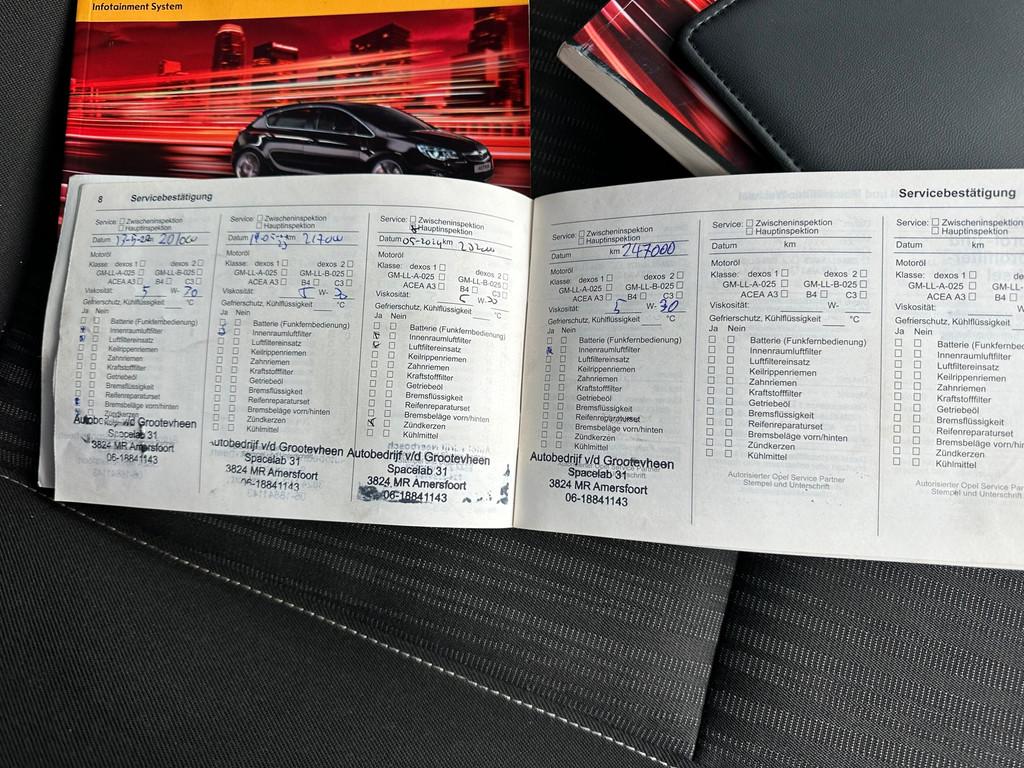 Infotainment System
8 Servicebestätigung
Service: Zwischeninspektion
Hauptinspektion
Datum
Motoröl
Klasse: dexos 1 dexos 2
GM-LL-A-025 GM-LL-B-025
ACEA A3 B4 C3
Viskosität: 5 W- 30
Gefrierschutz, Kühlflüssigkeit °C
Ja Nein
Batterie (Funkfernbedienung)
Innenraumluftfilter
Luftfiltereinsatz
Keilrippenriemen
Zahnriemen
Kraftstofffilter
Getriebeöl
Bremsflüssigkeit
Reifenreparaturset
Bremsbeläge vorn/hinten
Zündkerzen
Autobedrijf v/d Grootevheen
Spacelab 31
3824 MR Amersfoort
06-18841143
Service: Zwischeninspektion
Hauptinspektion
Datum km
Motoröl
Klasse: dexos 1 dexos 2
GM-LL-A-025 GM-LL-B-025
ACEA A3 B4 C3
Viskosität: 5 W- 30
Gefrierschutz, Kühlflüssigkeit °C
Ja Nein
Batterie (Funkfernbedienung)
Innenraumluftfilter
Luftfiltereinsatz
Keilrippenriemen
Zahnriemen
Kraftstofffilter
Getriebeöl
Bremsflüssigkeit
Reifenreparaturset
Bremsbeläge vorn/hinten
Zündkerzen
Kühlmittel
utobedrijf v/d Grootevheen
Spacelab 31
3824 MR Amersfoort
06-18841143
Service: Zwischeninspektion
Hauptinspektion
Datum km
Motoröl
Klasse: dexos 1 dexos 2
GM-LL-A-025 GM-LL-B-025
ACEA A3 B4 C3
Viskosität: 5 W- 30
Gefrierschutz, Kühlflüssigkeit °C
Ja Nein
Batterie (Funkfernbedienung)
Innenraumluftfilter
Luftfiltereinsatz
Keilrippenriemen
Zahnriemen
Kraftstofffilter
Getriebeöl
Bremsflüssigkeit
Reifenreparaturset
Bremsbeläge vorn/hinten
Zündkerzen
Kühlmittel
Autobedrijf v/d Grootevheen
Spacelab 31
3824 MR Amersfoort
06-18841143
Servicebestätigung
Service: Zwischeninspektion
Hauptinspektion
Datum km 247000
Motoröl
Klasse: dexos 1 dexos 2
GM-LL-A-025 GM-LL-B-025
ACEA A3 B4 C3
Viskosität: 5 W- 30
Gefrierschutz, Kühlflüssigkeit °C
Ja Nein
Batterie (Funkfernbedienung)
Innenraumluftfilter
Luftfiltereinsatz
Keilrippenriemen
Zahnriemen
Kraftstofffilter
Getriebeöl
Bremsflüssigkeit
Reifenreparaturset
Bremsbeläge vorn/hinten
Zündkerzen
Kühlmittel
Autobedrijf v/d Grootevheen
Spacelab 31
3824 MR Amersfoort
06-18841143
Service: Zwischeninspektion
Hauptinspektion
Datum km
Motoröl
Klasse: dexos 1 dexos 2
GM-LL-A-025 GM-LL-B-025
ACEA A3 B4 C3
Viskosität: W-
Gefrierschutz, Kühlflüssigkeit °C
Ja Nein
Batterie (Funkfernbedienung)
Innenraumluftfilter
Luftfiltereinsatz
Keilrippenriemen
Zahnriemen
Kraftstofffilter
Getriebeöl
Bremsflüssigkeit
Reifenreparaturset
Bremsbeläge vorn/hinten
Zündkerzen
Kühlmittel
Autorisierter Opel Service Partner
Stempel und Unterschrift
Service: Zwischeninspektion
Hauptinspektion
Datum km
Motoröl
Klasse: dexos 1 dexos
GM-LL-A-025 GM-LL-B-0
ACEA A3 B4
Viskosität: W-
Gefrierschutz, Kühlflüssigkeit
Ja Nein
Batterie (Funkfernbedie
Innenraumluftfilter
Luftfiltereinsatz
Keilrippenriemen
Zahnriemen
Kraftstofffilter
Getriebeöl
Bremsflüssigkeit
Reifenreparaturset
Bremsbeläge vorn/hint
Zündkerzen
Kühlmittel
Autorisierter Opel Service Pa
Stempel und Unterschri